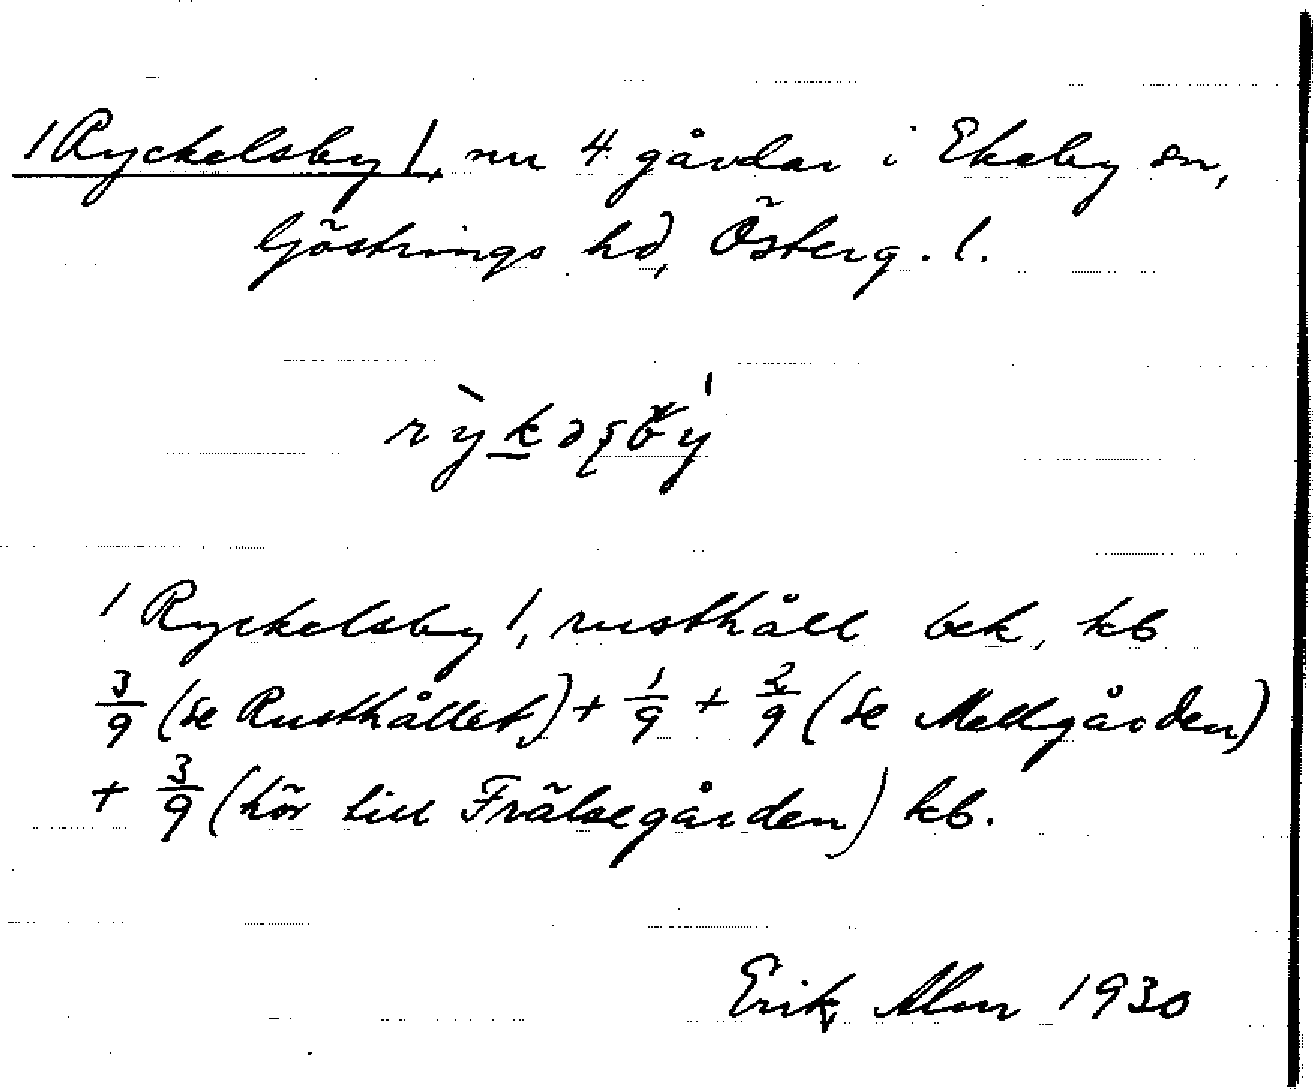 /Ryckelsby/, nu 4 gårdar i Ekeby sn,
Göstrings hd, Österg. l.
/Ryckelsby/, rusthåll bek, kb
3/9 (se Rusthållet) + 1/9 + 2/9 (se Mellgården)
+ 3/9 (hör till Frälsegården) kb.
Erik Alm 1930